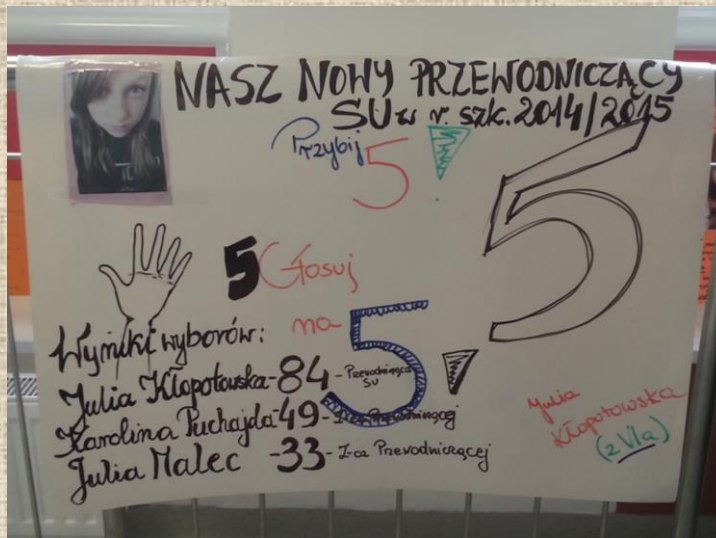 NASZ NOWY PRZEWODNICZĄCY
SU w r. szk. 2014/2015
Przybij 5!
5
5 Głosuj
na 5!
Wyniki wyborów:
Julia Kłopotowska - 84 - Przewodnicząca SU
Karolina Puchajda - 49 - Z-ca Przewodniczącej
Julia Malec - 33 - Z-ca Przewodniczącej
Julia
Kłopotowska
(z VIa)